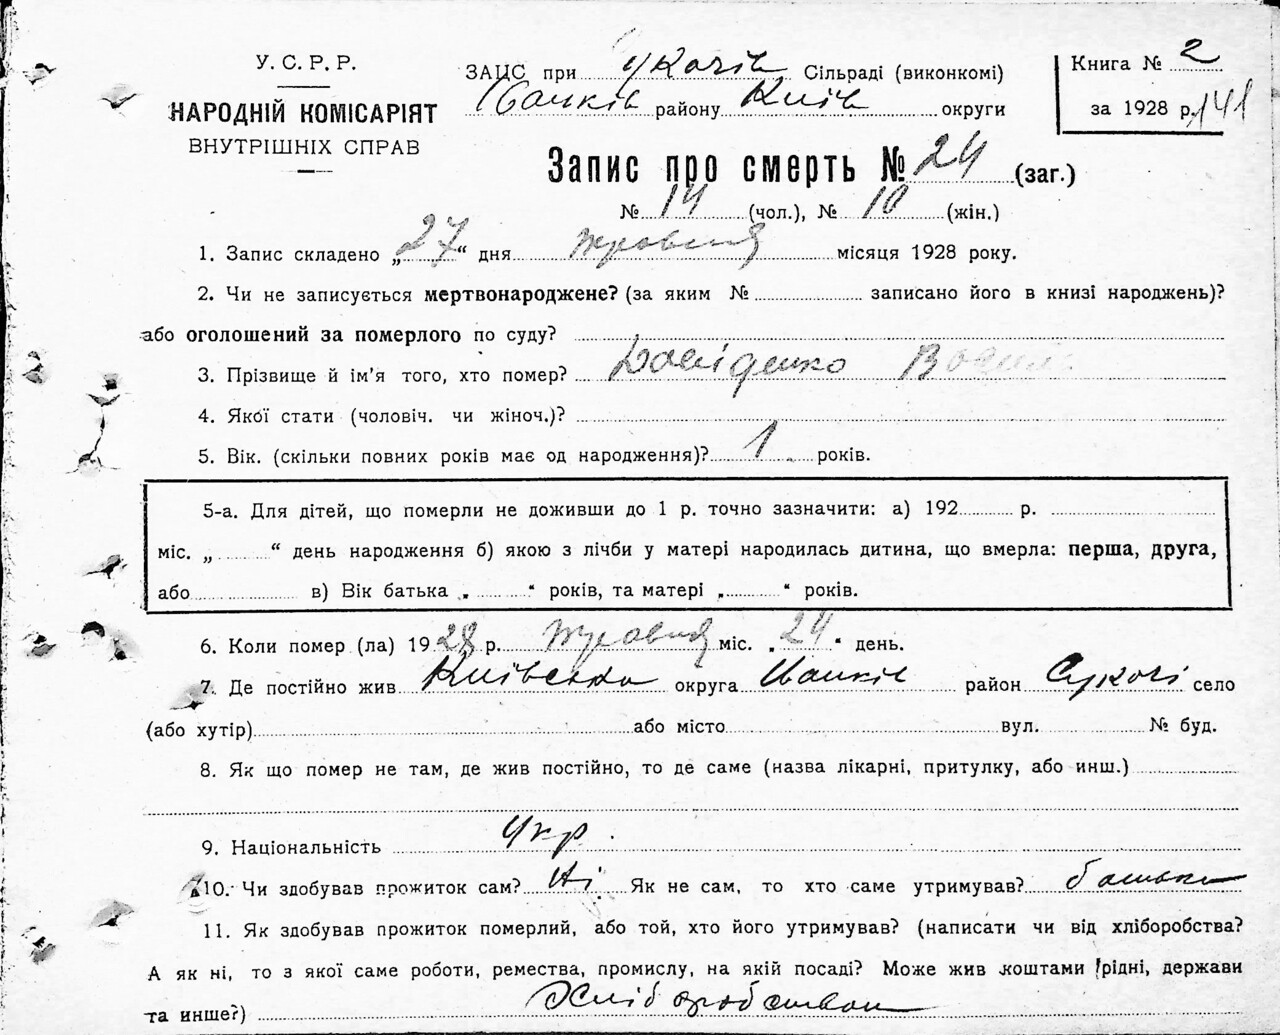 У. С. Р. Р.
НАРОДНІЙ КОМІСАРІЯТ
ВНУТРІШНІХ СПРАВ
ЗАЦС при Сільраді (виконкомі)
Іванків району Київ округи
Книга № 2
за 1928 р. 141
Запис про смерть № 24 (заг.)
№ 14 (чол.), № 10 (жін.)
1. Запис складено „27“ дня травня місяця 1928 року.
2. Чи не записується мертвонароджене? (за яким № записано його в книзі народжень)?
або оголошений за померлого по суду?
3. Прізвище й ім'я того, хто помер? Давіденко
4. Якої стати (чоловіч. чи жіноч.)?
5. Вік. (скільки повних років має од народження)? 1 років.
5-а. Для дітей, що померли не доживши до 1 р. точно зазначити: а) 192 р.
міс. „ “ день народження б) якою з лічби у матері народилась дитина, що вмерла: перша, друга,
або в) Вік батька „ “ років, та матері „ “ років.
6. Коли помер (ла) 1928 р. травня міс. „24“ день.
7. Де постійно жив Київська округа Іванків район Сукачі село
(або хутір) або місто вул. № буд.
8. Як що помер не там, де жив постійно, то де саме (назва лікарні, притулку, або инш.)
9. Національність Укр.
10. Чи здобував прожиток сам? Ні Як не сам, то хто саме утримував? батьки
11. Як здобував прожиток померлий, або той, хто його утримував? (написати чи від хліборобства?
А як ні, то з якої саме роботи, ремества, промислу, на якій посаді? Може жив коштами рідні, держави
та инше?) Хліборобством